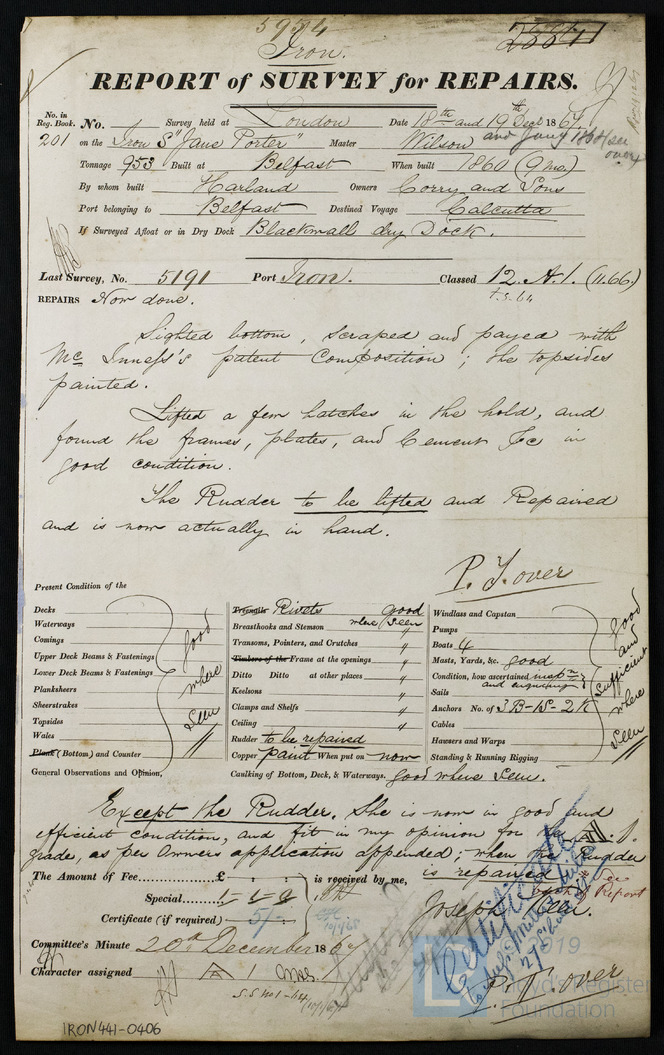 5954
Iron.
REPORT of SURVEY for REPAIRS.
No. in Reg. Book. No. Survey held at London Date 18th and 19th Sept 1867
and Jany 1868/see over
201 on the Iron S "Jane Porter" Master Wilson
Tonnage 953 Built at Belfast When built 1860 (9 mo.)
By whom built Harland Owners Corry and Sons
Port belonging to Belfast Destined Voyage Calcutta
If Surveyed Afloat or in Dry Dock Blackwall dry Dock.
Last Survey, No. 5191 Port Iron. Classed 12. A.1. (11.66.)
REPAIRS Now done.
Sighted bottom, scraped and payed with
Mc Inness's patent Composition; the topsides
painted.
Lifted a few hatches in the hold, and
found the frames, plates, and Cement &c in
good condition.
The Rudder to be lifted and Repaired
and is now actually in hand.
P. T. over
Present Condition of the
Decks
Waterways
Comings
Upper Deck Beams & Fastenings
Lower Deck Beams & Fastenings
Planksheers
Sheerstrakes
Topsides
Wales
Plank (Bottom) and Counter
good
where
seen
General Observations and Opinion,
Treenails Rivets good
Breasthooks and Stemson where seen
Transoms, Pointers, and Crutches "
Timbers of the Frame at the openings "
Ditto Ditto at other places "
Keelsons "
Clamps and Shelfs "
Ceiling "
Rudder to be repaired
Copper paint When put on now
Caulking of Bottom, Deck, & Waterways. Good where seen.
Windlass and Capstan
Pumps
Boats 4
Masts, Yards, &c. good
Condition, how ascertained
and enquiry
Sails
Anchors No. of 3 B-1S-2K
Cables
Hawsers and Warps
Standing & Running Rigging
good
and
sufficient
where
seen
Except the Rudder. She is now in good and
efficient condition, and fit in my opinion for the A.1.
grade, as per Owners application appended; when the Rudder
is repaired
The Amount of Fee £ : : is received by me,
Special
Certificate (if required) 5/-
see
Report
Joseph
Committee's Minute 20th December 1867
Character assigned A 1
P. T. over
2019
Lloyd's Register
Foundation
IRON441-0406